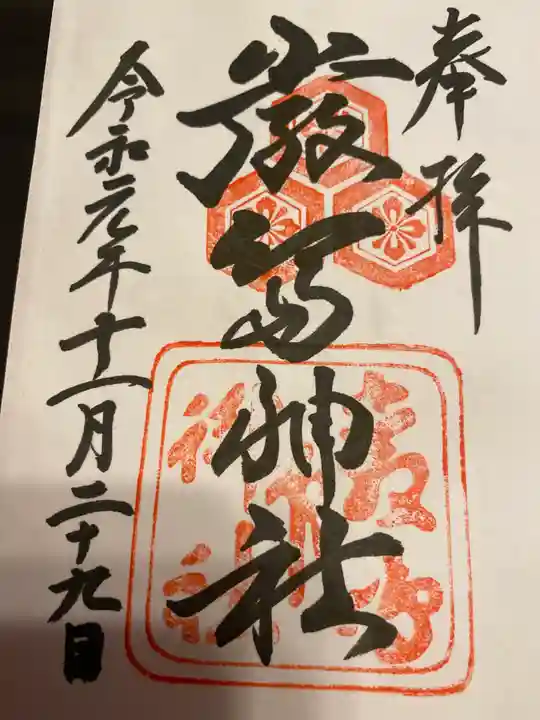 奉拝
嚴島神社
令和元年十一月二十九日